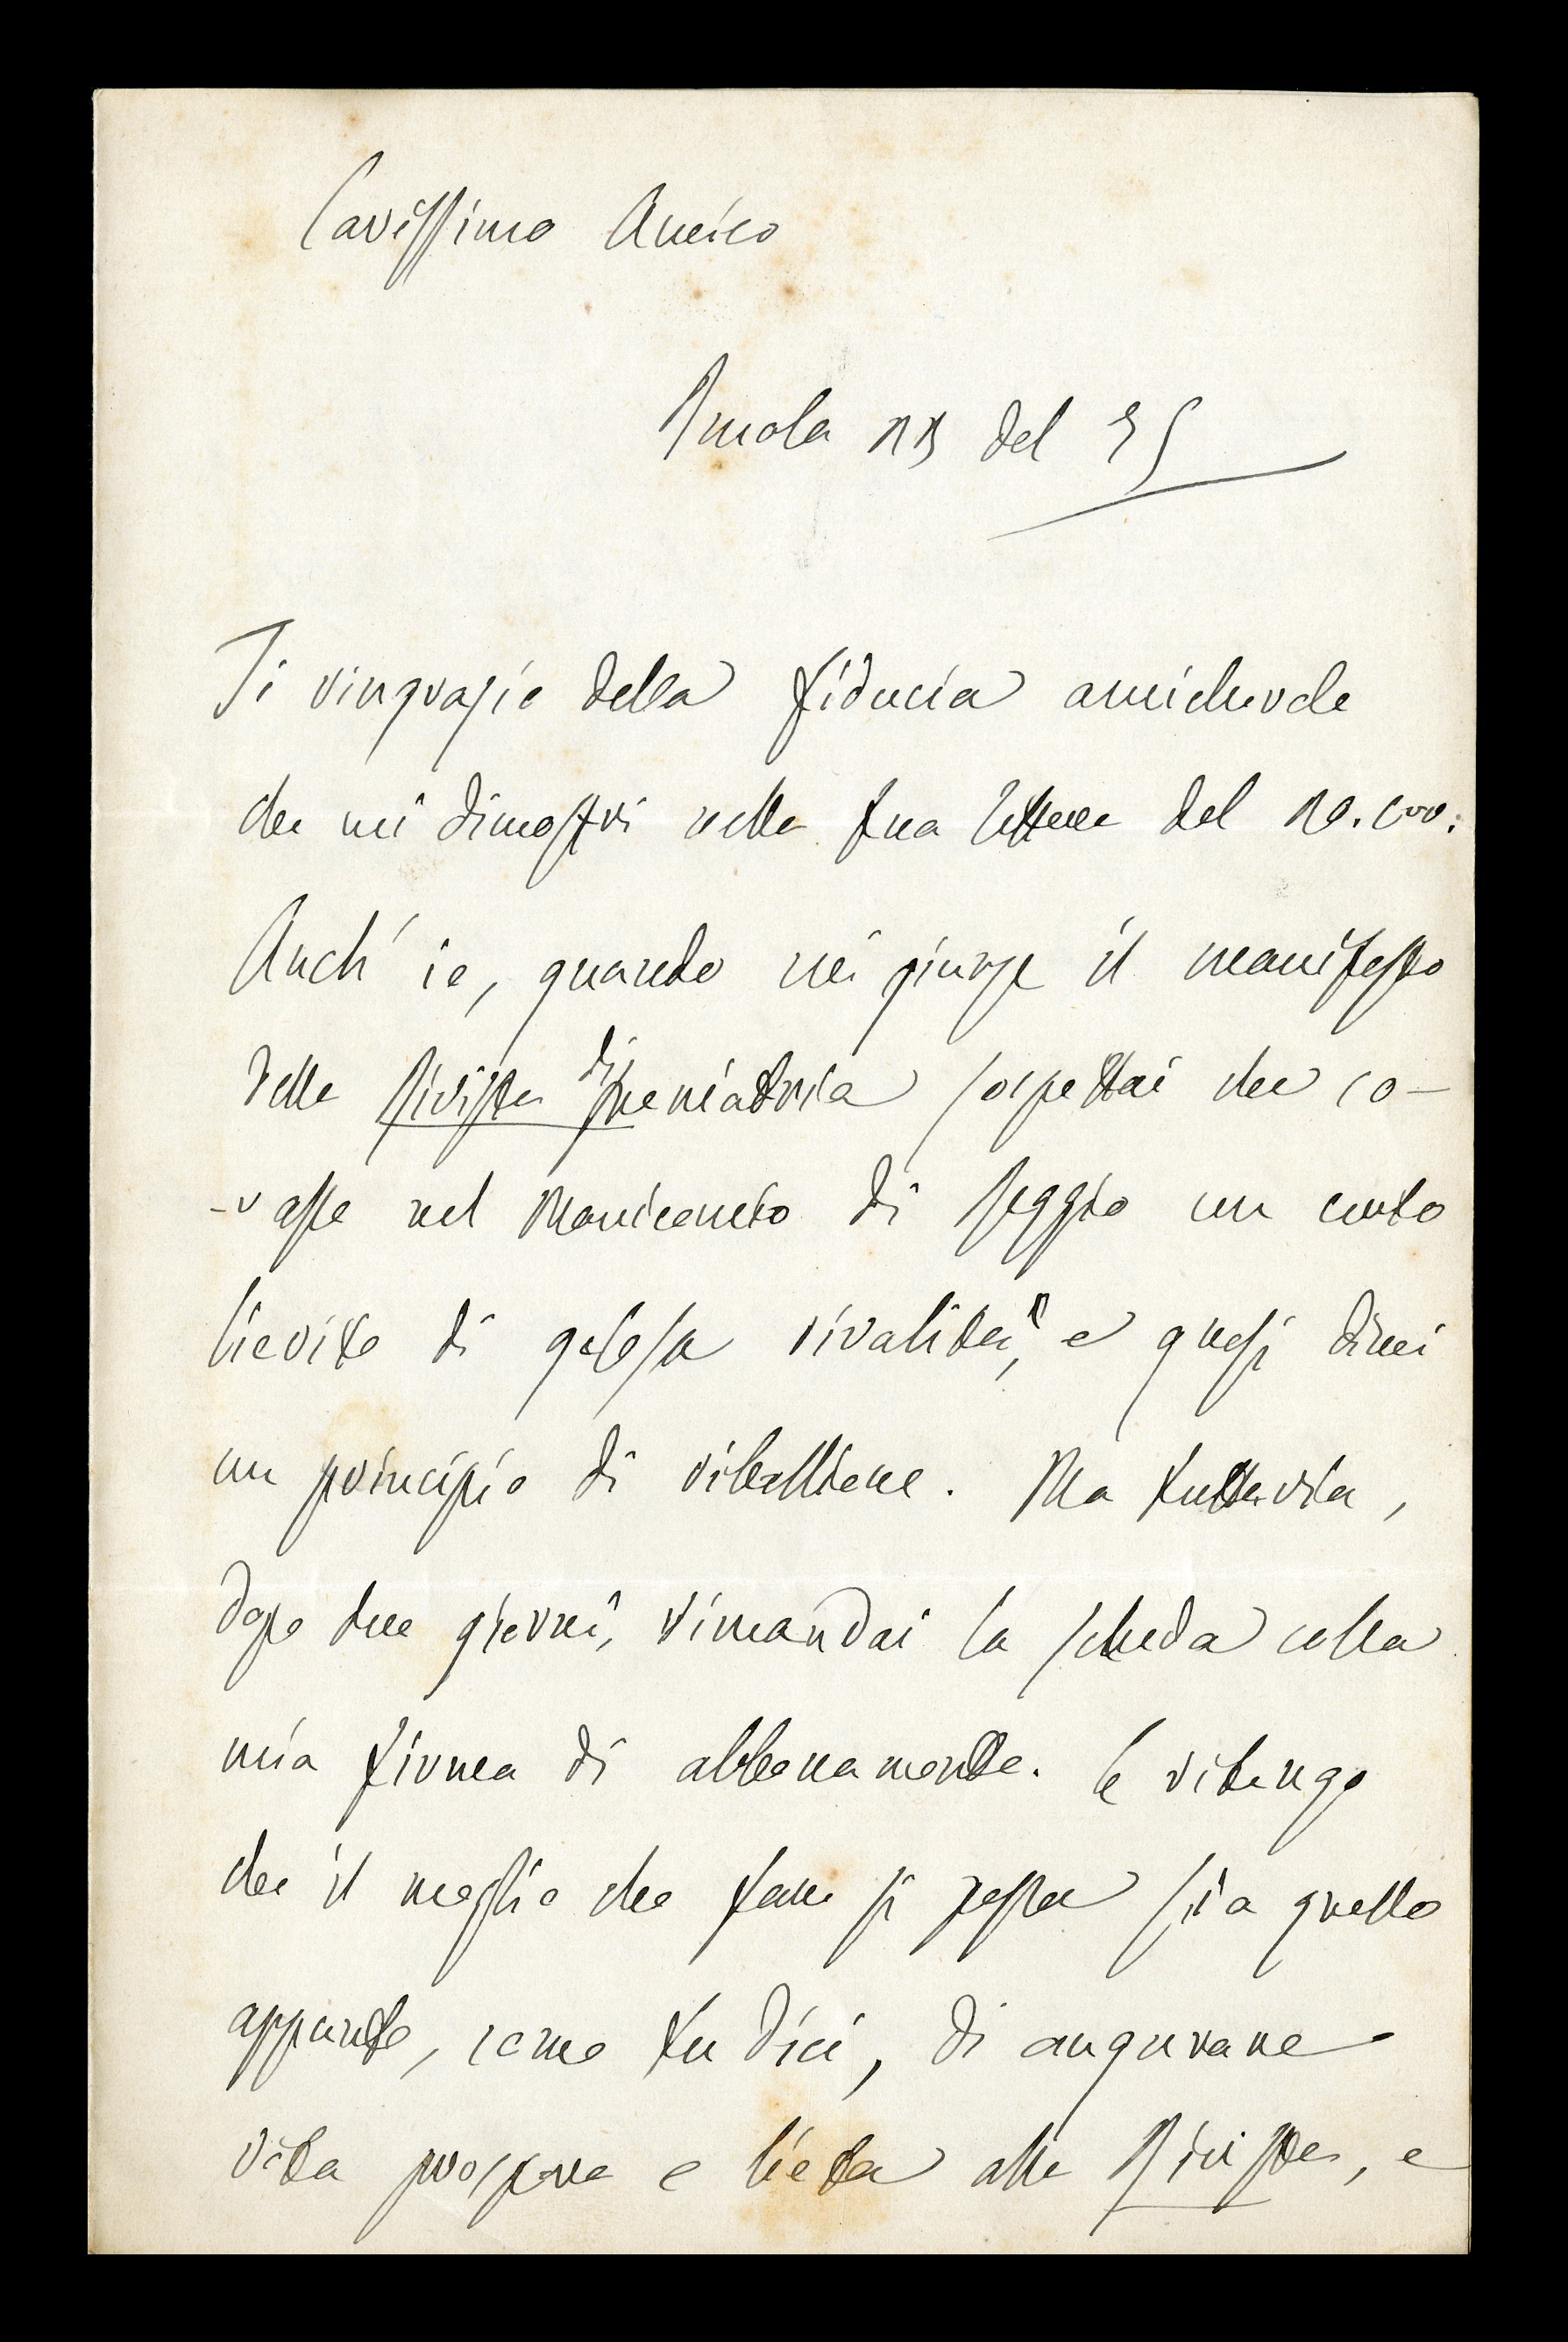 Carissimo Amico
Imola 11 del 75
Ti ringrazio della fiducia amichevole
che mi dimostri nella tua lettera del 10. cor.
Anch' io, quando mi giunse il manifesto
della Rivista di freniatria sospettai che co-
-vasse nel Manicomio di Reggio un certo
lievito di gelosa rivalità, e quasi direi
un principio di ribellione. Ma tuttavia,
dopo due giorni, rimandai la scheda colla
mia firma di abbonamento. E ritengo
che il meglio che fare si possa sia quello
appunto, come tu dici, di augurare
vita prospera e lieta alla Rivista, e